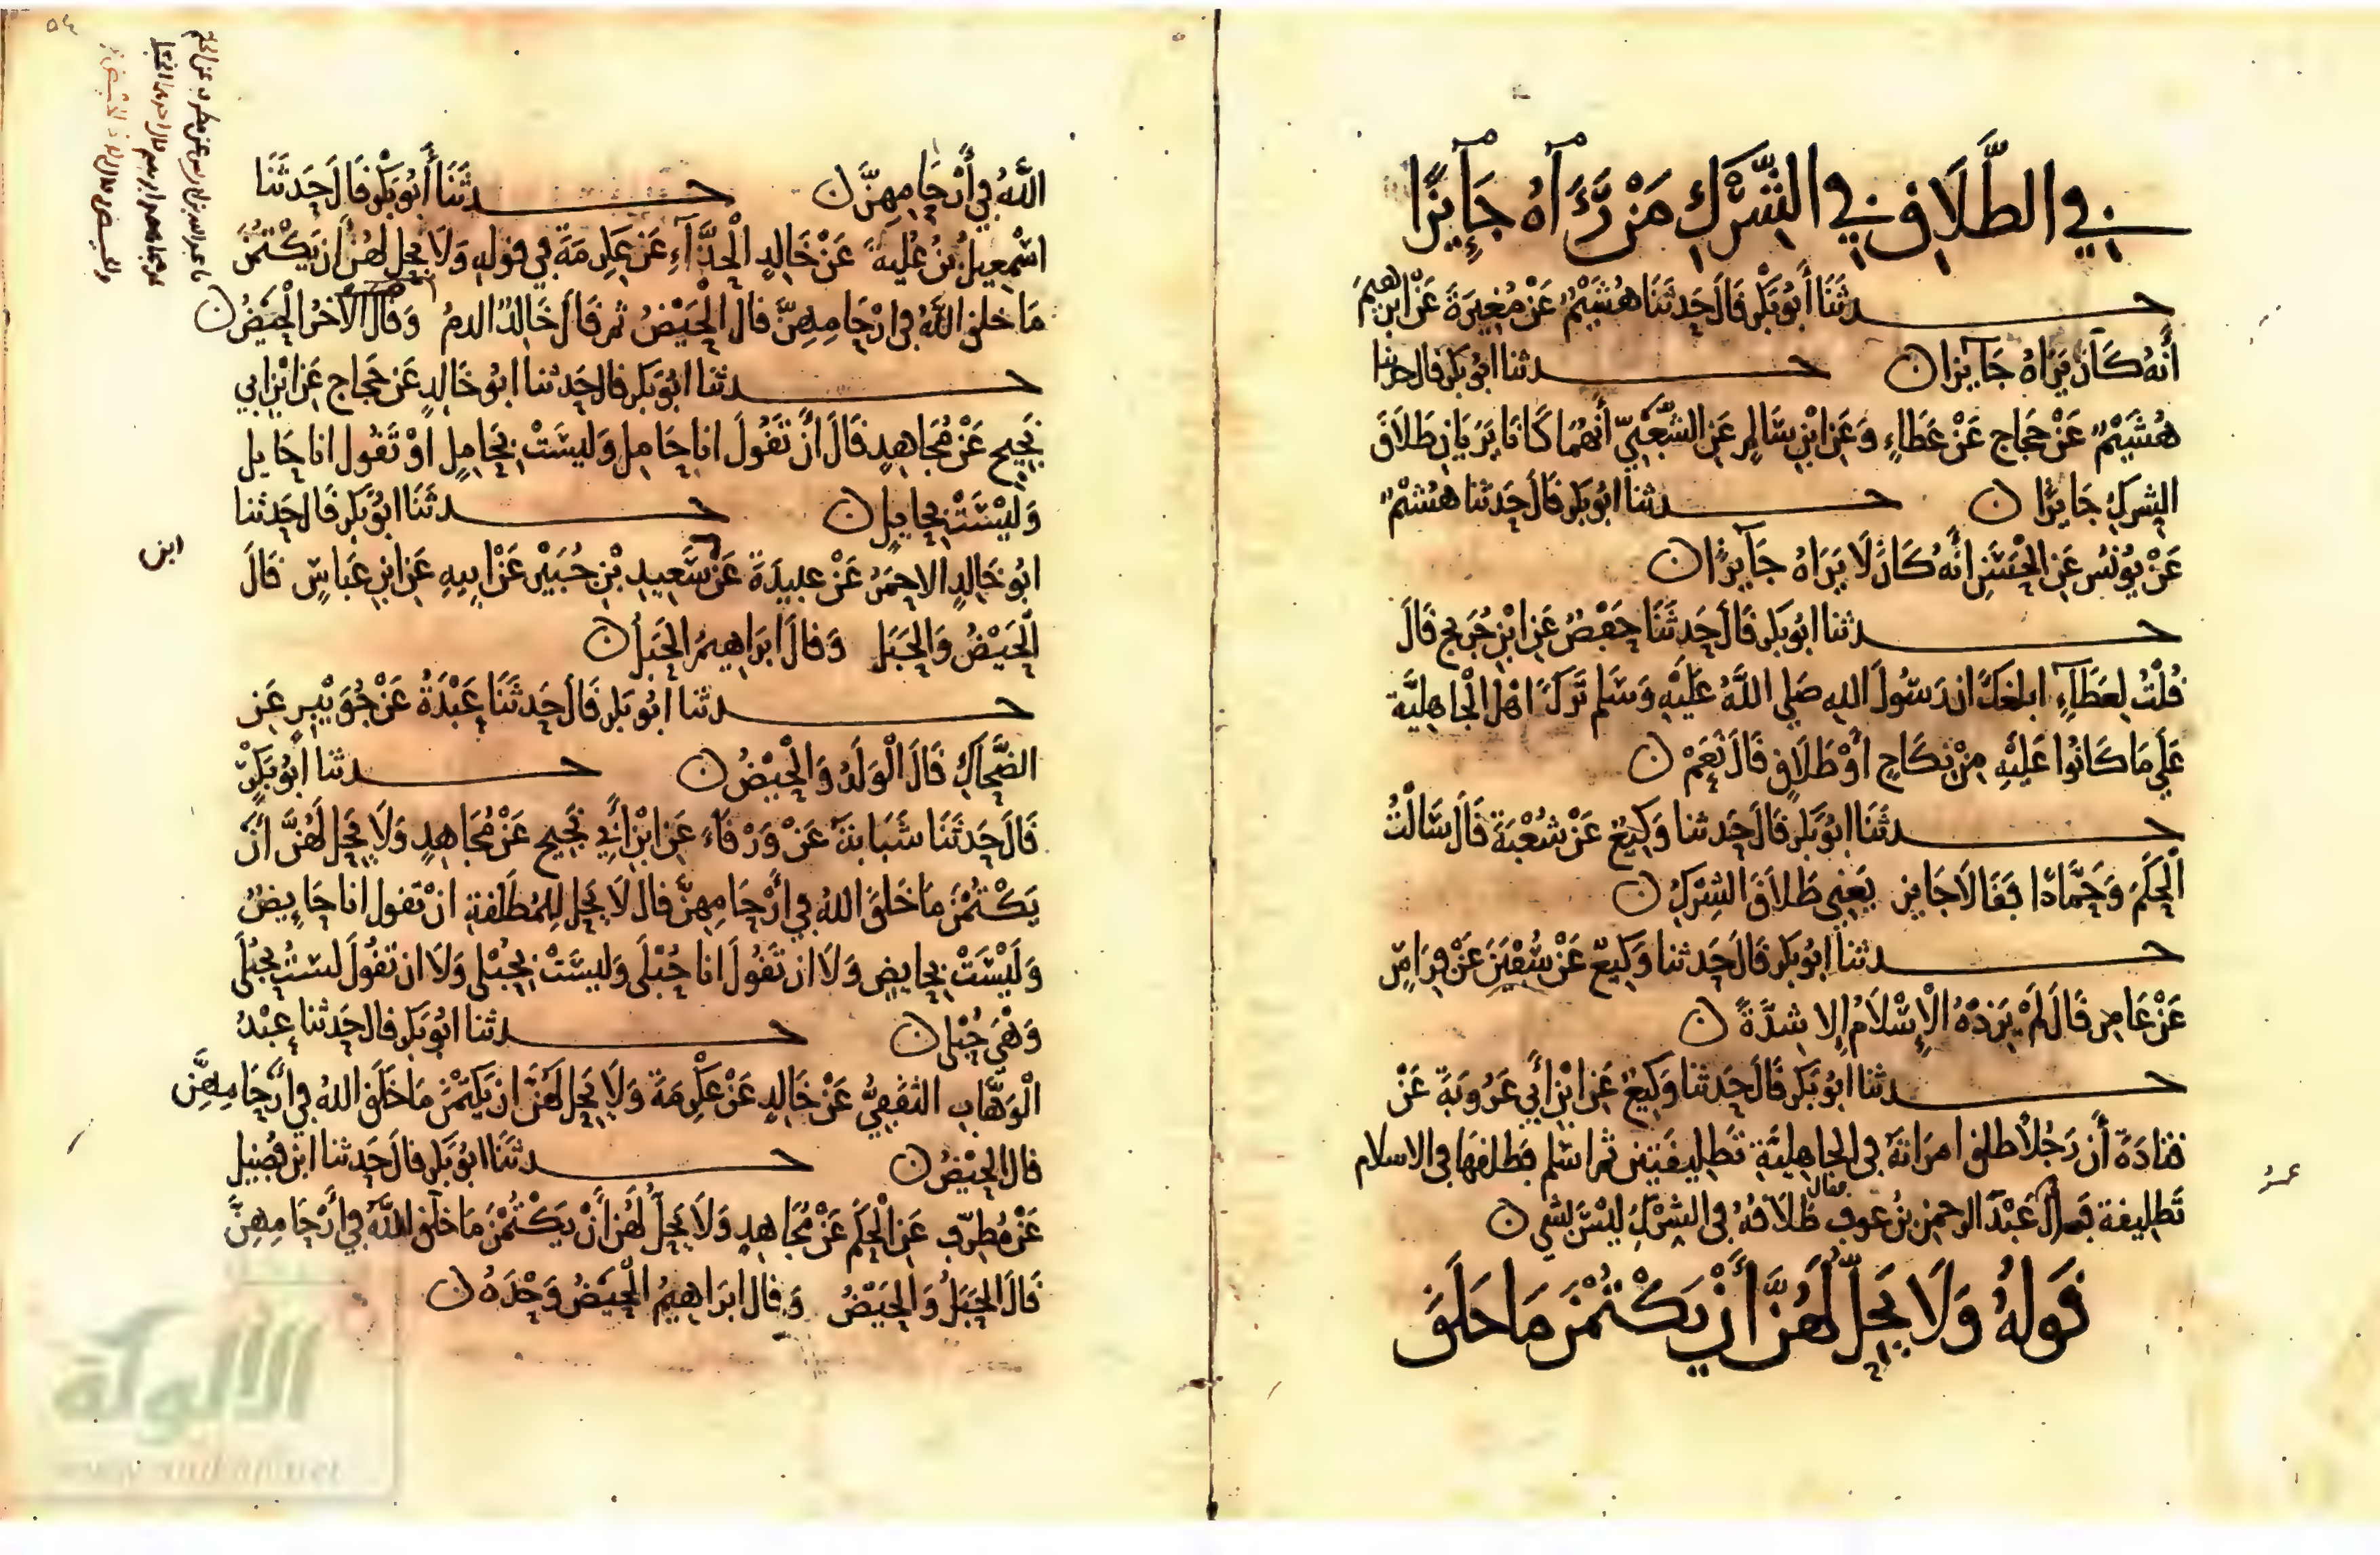 في الطلاق في الشرك من رءاه جايزا
حدثنا أبو بكر قال حدثنا هشيم عن مغيرة عن ابرهيم
أنه كان يراه جايزا ن حدثنا ابو بكر قال حدثنا
هشيم عن حجاج عن عطاء وعن ابن سالم عن الشعبي أنهما كانا يريان طلاق
الشرك جايزا ن حدثنا ابو بكر قال حدثنا هشيم
عن يونس عن الحسن انه كان لا يراه جايزا ن
حدثنا ابو بكر قال حدثنا حفص عن ابن جريج قال
قلت لعطاء ابلغك ان رسول الله صلى الله عليه وسلم ترك اهل الجاهلية
على ما كانوا عليه من نكاح أو طلاق قال نعم ن
حدثنا ابو بكر قال حدثنا وكيع عن شعبة قال سالت
الحكم وحمادا فقالا جايز يعني طلاق الشرك ن
حدثنا ابو بكر قال حدثنا وكيع عن سفين عن فراس
عن عامر قال لم يزده الإسلام إلا شدة ن
حدثنا ابو بكر قال حدثنا وكيع عن ابن أبي عروبة عن
قتادة أن رجلا طلق امراته في الجاهلية تطليقتين ثم اسلم فطلقها في الاسلام
تطليقة عبد الرحمن بن عوف طلاقه في الشرك ليس بشي ن
فقال
عمر
قوله ولا يحل لهن أن يكتمن ما خلق
الله في أرحامهن ن حدثنا أبو بكر قال حدثنا
اسمعيل بن علية عن خالد الحذاء عن عكرمة في قوله ولا يحل لهن أن يكتمن
ما خلق الله في ارحامهن قال الحيض ثم قال خالد الدم وقال الآخر الحيض ن
حدثنا ابو بكر قال حدثنا ابو خالد عن حجاج عن ابن ابي
نجيح عن مجاهد قال أن تقول انا حامل وليست بحامل او تقول انا حايل
وليست بحايل ن حدثنا ابو بكر قال حدثنا
ابو خالد الاحمر عن عبيدة عن سعيد بن جبير عن ابيه عن ابن عباس قال
ابن
الحيض والحبل وقال ابراهيم الحبل ن
حدثنا ابو بكر قال حدثنا عبدة عن جويبر عن
الضحاك قال الولد والحيض ن حدثنا أبو بكر
قال حدثنا شبابة عن ورقاء عن ابن أبي نجيح عن مجاهد ولا يحل لهن أن
يكتمن ما خلق الله في أرحامهن قال لا يحل للمطلقة ان تقول انا حايض
وليست بحايض ولا ان تقول انا حبلى وليست بحبلى ولا ان تقول لست بحبلى
وهي حبلى ن حدثنا ابو بكر قال حدثنا عبد
الوهاب الثقفي عن خالد عن عكرمة ولا يحل لهن ان يكتمن ما خلق الله في أرحامهن
قال الحيض ن حدثنا ابو بكر قال حدثنا ابن فضيل
عن مطرف عن الحكم عن مجاهد ولا يحل لهن أن يكتمن ما خلق الله في أرحامهن
قال الحبل والحيض وقال ابراهيم الحيض وحده ن
الألوكة